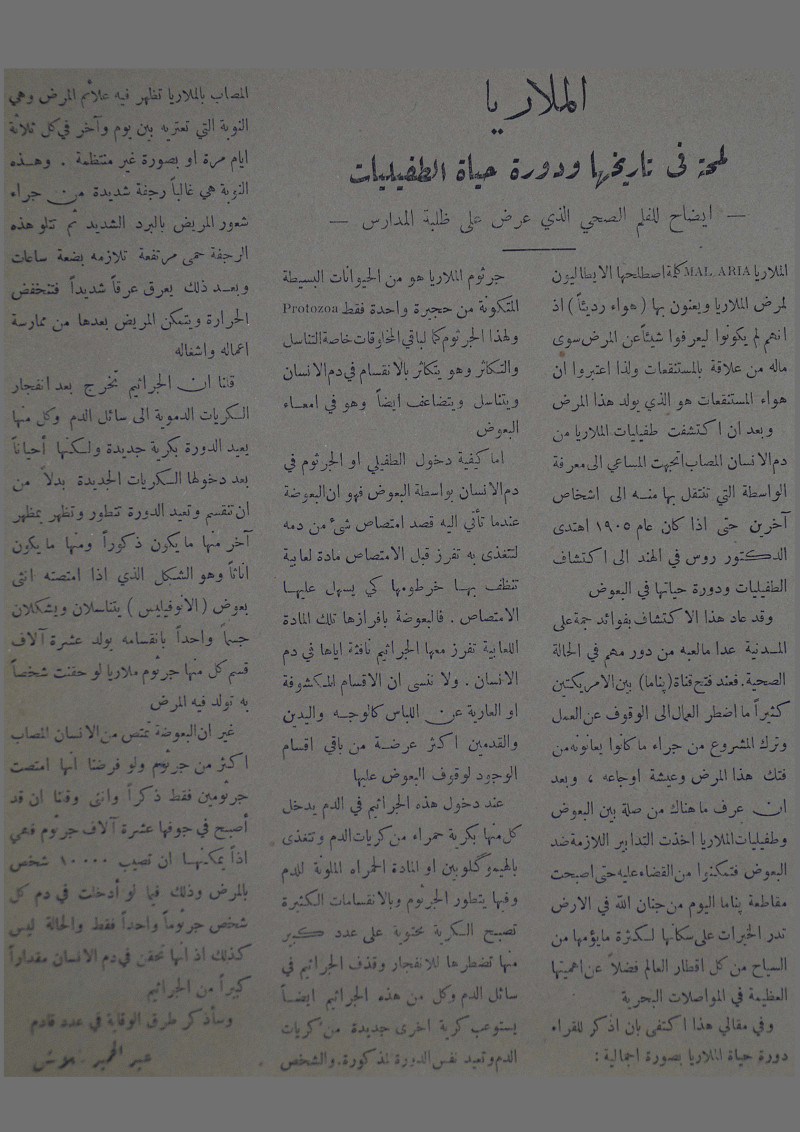 الملاريا
لمحة في تاريخها ودورة حياة الطفيليات
— ايضاح للفلم الصحي الذي عرض على طلبة المدارس —
الملاريا MAL. ARIA كلمة اصطلحها الايطاليون
لمرض الملاريا ويعنون بها (هواء رديئاً) اذ
انهم لم يكونوا ليعرفوا شيئاً عن المرض سوى
ماله من علاقة بالمستنقعات ولذا اعتبروا ان
هواء المستنقعات هو الذي يولد هذا المرض
وبعد ان اكتشفت طفيليات الملاريا من
دم الانسان المصاب اتجهت المساعي الى معرفة
الواسطة التي تنتقل بها منه الى اشخاص
آخرين حتى اذا كان عام ١٩٠٥ اهتدى
الدكتور روس في الهند الى اكتشاف
الطفيليات ودورة حياتها في البعوض
وقد عاد هذا الاكتشاف بفوائد جمة على
المدنية عدا مالعبه من دور مهم في الحالة
الصحية. فعند فتح قناة (پناما) بين الامريكتين
كثيراً ما اضطر العمال الى الوقوف عن العمل
وترك المشروع من جراء ما كانوا يعانونه من
فتك هذا المرض وعيشة اوجاعه ، وبعد
ان عرف ماهناك من صلة بين البعوض
وطفيليات الملاريا اخذت التدابير اللازمة ضد
البعوض فتمكنوا من القضاء عليه حتى اصبحت
مقاطعة پناما اليوم من جنان الله في الارض
تدر الخيرات على سكانها لكثرة مايؤمها من
السياح من كل اقطار العالم فضلاً عن اهميتها
العظيمة في المواصلات البحرية
وفي مقالي هذا اكتفى بان اذكر للقراء
دورة حياة الملاريا بصورة اجمالية :
جرثوم الملاريا هو من الحيوانات البسيطة
المتكونة من حجيرة واحدة فقط Protozoa
ولهذا الجرثوم كما لباقي المخلوقات خاصة التناسل
والتكاثر وهو يتكاثر بالانقسام في دم الانسان
ويتناسل ويتضاعف ايضاً وهو في امعاء
البعوض
اما كيفية دخول الطفيلي او الجرثوم في
دم الانسان بواسطة البعوض فهو ان البعوضة
عندما تأتي اليه قصد امتصاص شئ من دمه
لتتغذى به تفرز قبل الامتصاص مادة لعابية
تنظف بها خرطومها كي يسهل عليها
الامتصاص . فالبعوضة بافرازها تلك المادة
اللعابية تفرز معها الجراثيم نافثة اياها في دم
الانسان . ولا ننسى ان الاقسام المكشوفة
او العارية عن اللباس كالوجه واليدين
والقدمين اكثر عرضة من باقي اقسام
الوجود لوقوف البعوض عليها
عند دخول هذه الجراثيم في الدم يدخل
كل منها بكرية حمراء من كريات الدم وتتغذى
بالهيموگلوبين او المادة الحمراء الملونة للدم
وفيها يتطور الجرثوم وبالانقسامات الكثيرة
تصبح الكرية محتوية على عدد كبير
منها تضطرها للانفجار وقذف الجراثيم في
سائل الدم وكل من هذه الجراثيم ايضاً
يستوعب كرية اخرى جديدة من كريات
الدم وتعيد نفس الدورة المذكورة. والشخص
المصاب بالملاريا تظهر فيه علائم المرض وهي
النوبة التي تعتريه بين يوم وآخر في كل ثلاثة
ايام مرة او بصورة غير منتظمة . وهذه
النوبة هي غالباً رجفة شديدة من جراء
شعور المريض بالبرد الشديد ثم تتلو هذه
الرجفة حمى مرتفعة تلازمه بضعة ساعات
وبعد ذلك يعرق عرقاً شديداً فتنخفض
الحرارة ويتمكن المريض بعدها من ممارسة
اعماله واشغاله
قلنا ان الجراثيم تخرج بعد انفجار
الكريات الدموية الى سائل الدم وكل منها
يعيد الدورة بكرية جديدة ولكنها أحياناً
بعد دخولها الكريات الجديدة بدلاً من
ان تنقسم وتعيد الدورة تتطور وتظهر بمظهر
آخر منها ما يكون ذكوراً ومنها ما يكون
اناثاً وهو الشكل الذي اذا امتصته انثى
بعوض (الانوفيليس) يتناسلان ويشكلان
جسماً واحداً بانقسامه يولد عشرة آلاف
قسم كل منها جرثوم ملاريا لو حقنت شخصاً
به تولد فيه المرض
غير ان البعوضة تمتص من الانسان المصاب
اكثر من جرثوم ولو فرضنا انها امتصت
جرثومين فقط ذكراً وانثى وقلنا ان قد
أصبح في جوفها عشرة آلاف جرثوم فهي
اذاً يمكنها ان تصيب ١٠٠٠٠ شخص
بالمرض وذلك فيما لو أدخلت في دم كل
شخص جرثوماً واحداً فقط والحالة ليس
كذلك اذ انها تحقن في دم الانسان مقداراً
كبيراً من الجراثيم
وسأذكر طرق الوقاية في عدد قادم
عبد الحميد